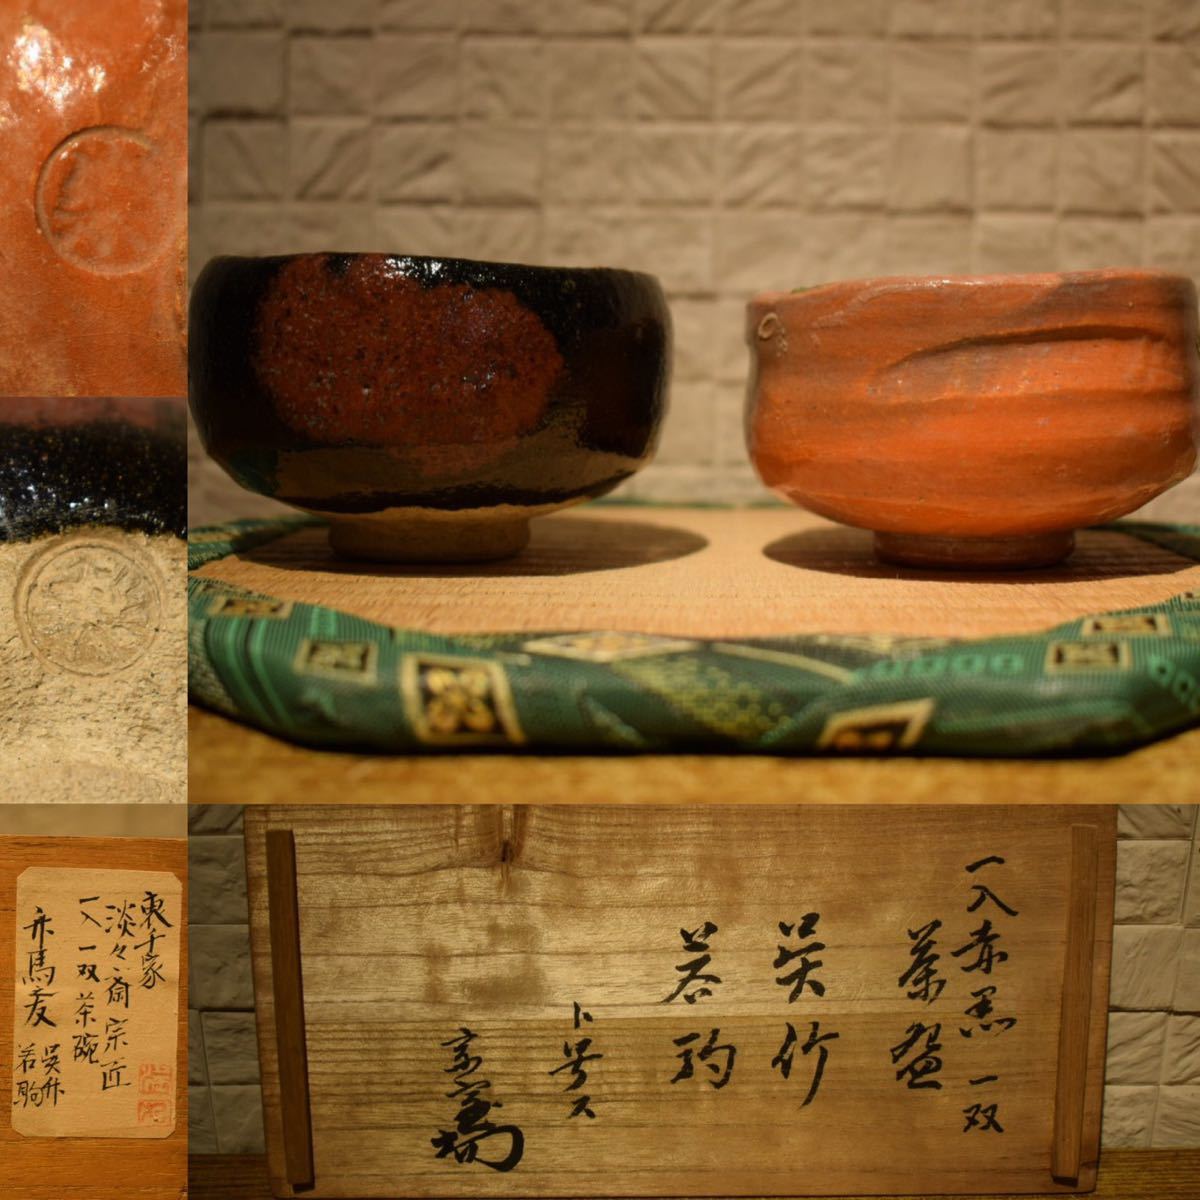 一入赤黒 一双
茶盌
呉竹
若駒
ト号ス
裏千家
淡々斎宗匠
一入一双茶碗
呉竹
若駒